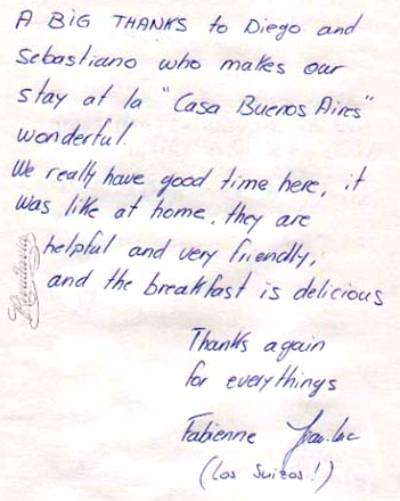 A BIG THANKS to Diego and
Sebastiano who makes our
stay at la "Casa Buenos Aires"
wonderful.
We really have good time here, it
was like at home. they are
helpful and very friendly,
and the breakfast is delicious
Thanks again
for everythings
Fabienne Jean-Luc
(Los Suizos!)